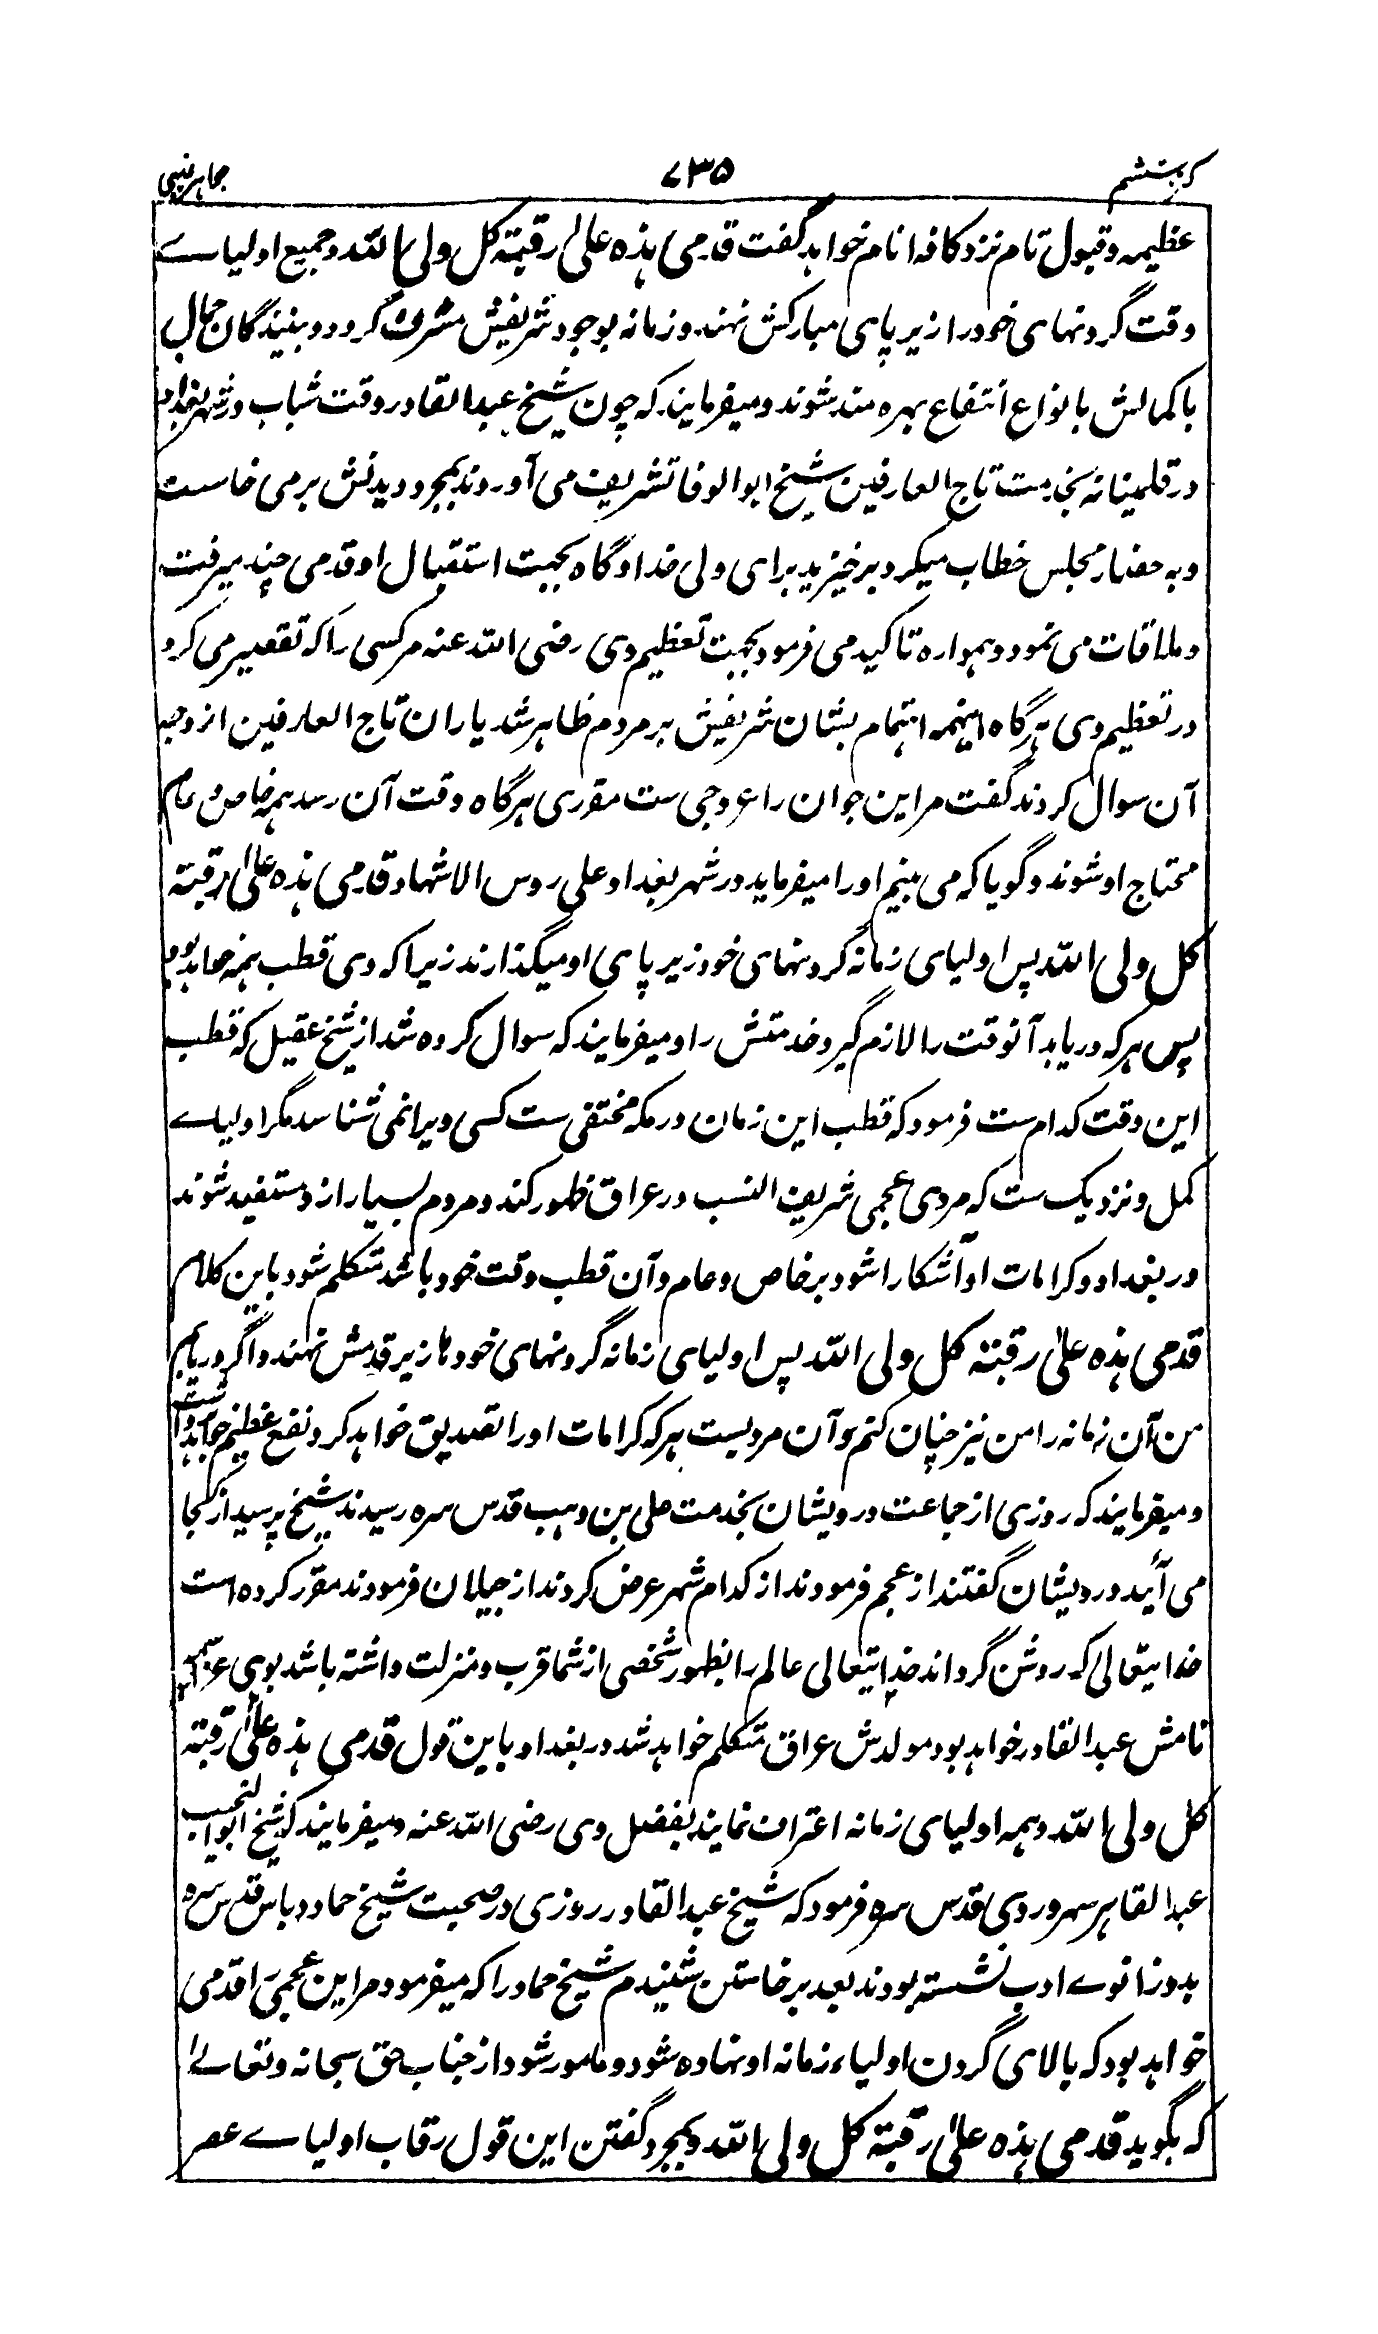 ۷۳۵
عظیمه و قبول تام نزد کافه انام خواهد گفت قدمی هذه علی رقبة کل ولی الله و جمیع اولیاے
وقت گردنهای خود را زیر پای مبارکش نهند و زمانه بوجود شریفش مشرف گردد و بینندگان جمال
باکمالش بانواع انتفاع بهره مند شوند و میفرمایند که چون شیخ عبدالقادر وقت شباب در شهر بغداد
در قلمینانه بخدمت تاج العارفین شیخ ابوالوفا تشریف می آوردند بمجرد دیدنش برمی خاست
و به حضار مجلس خطاب میکرد برخیزید برای ولی خدا و گاه بجهت استقبال او قدمی چند میرفت
و ملاقات می نمود و همواره تاکید می فرمود بجهت تعظیم وی رضی الله عنه مر کسی را که تقصیر می کرد
در تعظیم وی هرگاه اینهمه اهتمام بشان شریفش بر مردم ظاهر شد یاران تاج العارفین از وجه
آن سوال کردند گفت مر این جوان را عروجی ست مقرری هرگاه وقت آن رسد همه خاص و عام
محتاج او شوند و گویا که می بینم او را میفرماید در شهر بغداد علی روس الاشهاد قدمی هذه علی رقبة
کل ولی الله پس اولیای زمانه گردنهای خود زیر پای او میگذارند زیرا که وی قطب همه خواهد بود
پس هرکه دریابد آنوقت را لازم گیرد خدمتش را و میفرمایند که سوال کرده شد از شیخ عقیل که قطب
این وقت کدام ست فرمود که قطب این زمان در مکه مختفی ست کسی ویرا نمی شناسد مگر اولیاے
کمل و نزدیک ست که مردی عجمی شریف النسب در عراق ظهور کند و مردم بسیار ازو مستفید شوند
در بغداد و کرامات او آشکارا شود بر خاص و عام و آن قطب وقت خود باشد متکلم شود باین کلام
قدمی هذه علی رقبة کل ولی الله پس اولیای زمانه گردنهای خودها زیر قدمش نهند و اگر دریابم
من آن زمانه را من نیز چنان کنم و آن مردیست هرکه کرامات او را تصدیق خواهد کرد نفع عظیم خواهد داشت
و میفرمایند که روزی از جماعت درویشان بخدمت علی بن وهب قدس سره رسیدند شیخ پرسید از کجا
می آئید درویشان گفتند از عجم فرمودند از کدام شهر عرض کردند از جیلان فرمودند مقرر کرده است
خدایتعالی که روشن گرداند خدایتعالی عالم را بظهور شخصی از شما قرب و منزلت داشته باشد بوی
نامش عبدالقادر خواهد بود مولدش عراق متکلم خواهد شد در بغداد باین قول قدمی هذه علی رقبة
کل ولی الله و همه اولیای زمانه اعتراف نمایند بفضل وی رضی الله عنه و میفرمایند که شیخ ابوالنجیب
عبدالقاهر سهروردی قدس سره فرمود که شیخ عبدالقادر روزی در صحبت شیخ حماد دباس قدس سره
بدوزانوے ادب نشسته بودند بعد برخاستن شنیدم شیخ حماد را که میفرمود مر این عجمی را قدمی
خواهد بود که بالای گردن اولیاء زمانه او نهاده شود و مامور شود از جناب حق سبحانه و تعالے
که بگوید قدمی هذه علی رقبة کل ولی الله و بمجرد گفتن این قول رقاب اولیاے عصر